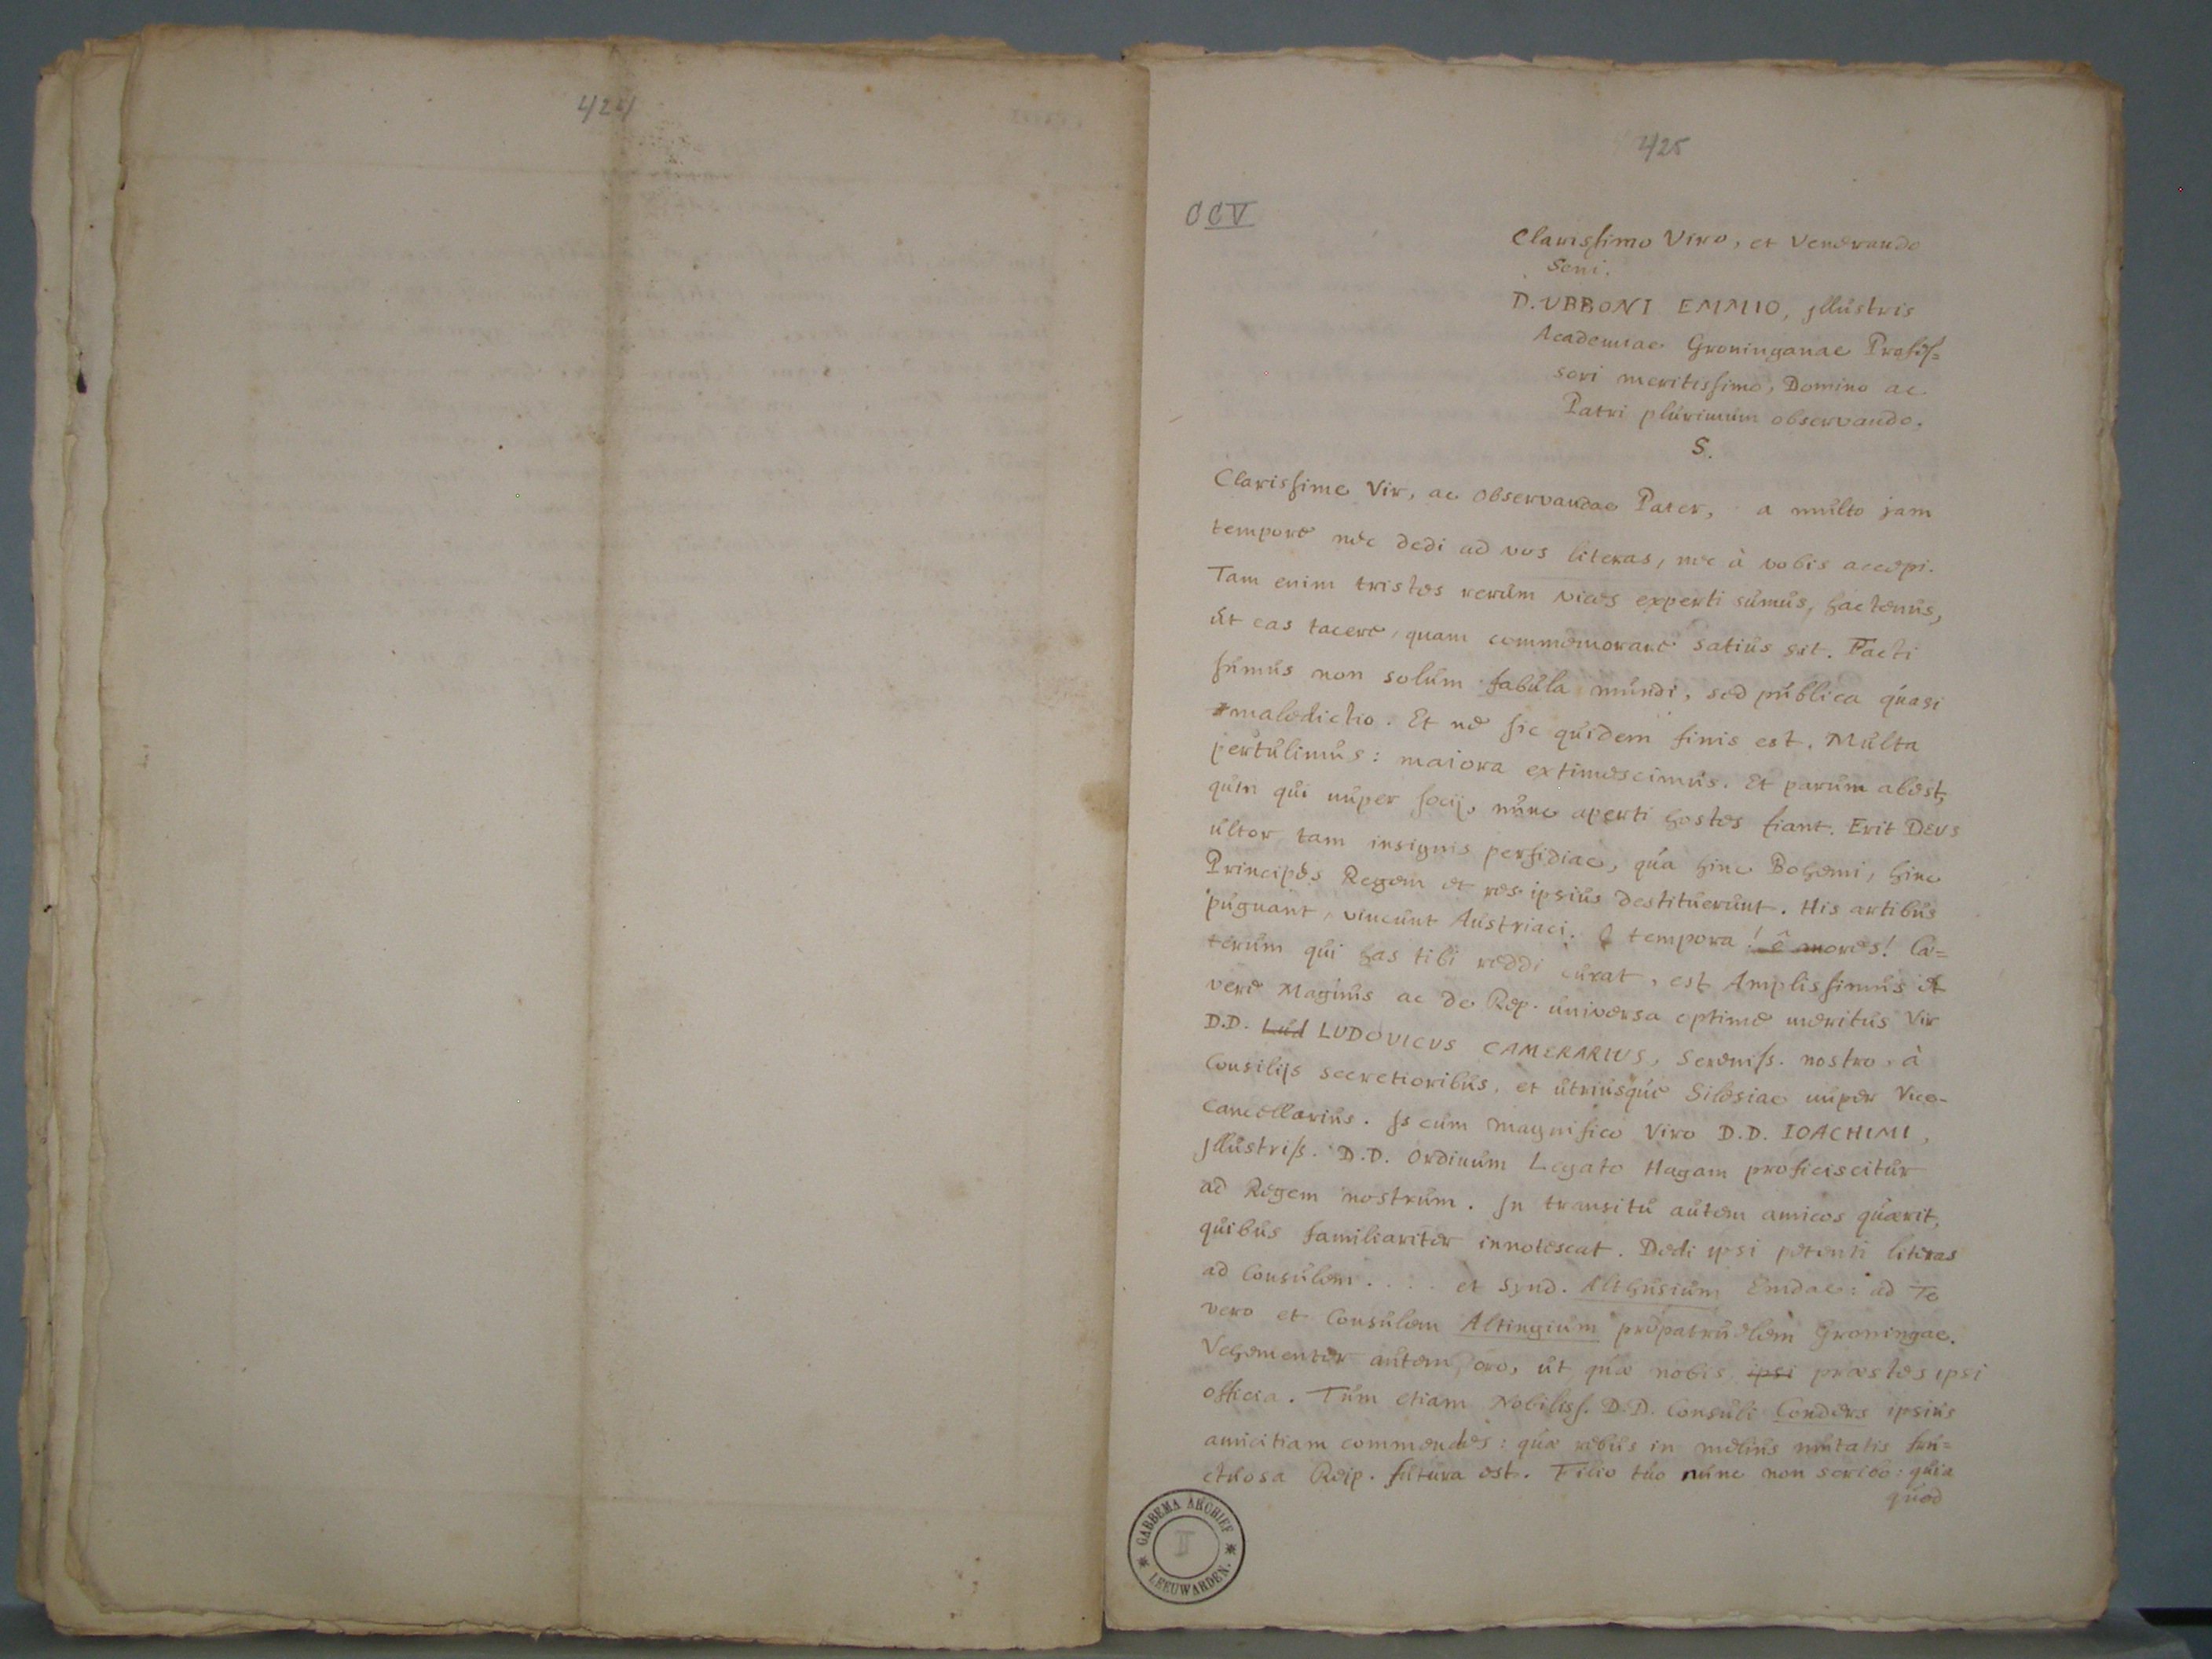 424
425
CCV
Clarissimo Viro, et Venerando
Seni.
D. VBBONI EMMIO, jllustris
Academiae Groninganae Profes=
sori meritissimo, Domino ac
Patri plurimum observando.
S.
Clarissime Vir, ac observandae Pater, a multo jam
tempore nec dedi ad vos literas, nec à vobis accepi.
Tam enim tristes rerum vices experti sumus, hactenus,
ut eas tacere, quam commemorare satius sit. Facti
sumus non solum fabula mundi, sed publica quasi
maledictio. Et ne sic quidem finis est. Multa
pertulimus: maiora extimescimus. Et parum abest,
quin qui nuper socij, nunc aperti hostes fiant. Erit DEVS
ultor tam insignis perfidiae, qua hinc Bohemi, hinc
Principes Regem et res ipsius destituerunt. His artibus
pugnant, vincunt Austriaci. O tempora! ô mores! Cæ=
terum qui has tibi reddi curat, est Amplissimus et
vere Magnus ac de Rep. universa optime meritus Vir
D.D. Lud LUDOVICVS CAMERARIVS, Sereniss. nostro, à
Consilijs secretioribus, et utriusque Silesiae nuper Vice-
cancellarius. Js cum magnifico Viro D.D. IOACHIMI,
jllustriss. D.D. Ordinum Legato Hagam proficiscitur
ad Regem nostrum. Jn transitu autem amicos quærit,
quibus familiariter innotescat. Dedi ipsi petenti literas
ad Consulem .... et Synd. Althusium Emdae: ad Te
vero et Consulem Altingium propatruelem Groningae.
Vehementer autem oro, ut quæ nobis ipsi præstes ipsi
officia. Tum etiam Nobiliss. D.D. Consuli Conders ipsius
amicitiam commendes: quæ rebus in melius mutatis fru=
ctuosa Reip. futura est. Filio tuo nunc non scribo: quia
quod
GABBEMA ARCHIEF
I
LEEUWARDEN.